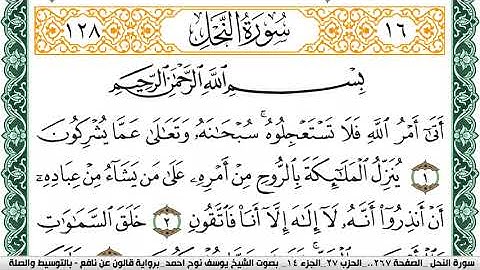 ١٦ سُورَةُ النَّحْلِ ١٢٨
بِسْمِ اللَّهِ الرَّحْمَٰنِ الرَّحِيمِ
أَتَىٰ أَمْرُ اللَّهِ فَلَا تَسْتَعْجِلُوهُ سُبْحَانَهُ وَتَعَالَىٰ عَمَّا يُشْرِكُونَ
١ يُنَزِّلُ الْمَلَائِكَةَ بِالرُّوحِ مِنْ أَمْرِهِ عَلَىٰ مَن يَشَاءُ مِنْ عِبَادِهِ
أَنْ أَنذِرُوا أَنَّهُ لَا إِلَٰهَ إِلَّا أَنَا فَاتَّقُونِ ٢ خَلَقَ السَّمَاوَاتِ
سورة النحل_ الصفحة ٢٦٧_ الحزب ٢٧_ الجزء ١٤_ بصوت الشيخ يوسف نوح احمد_ برواية قالون عن نافع - بالتوسيط والصلة